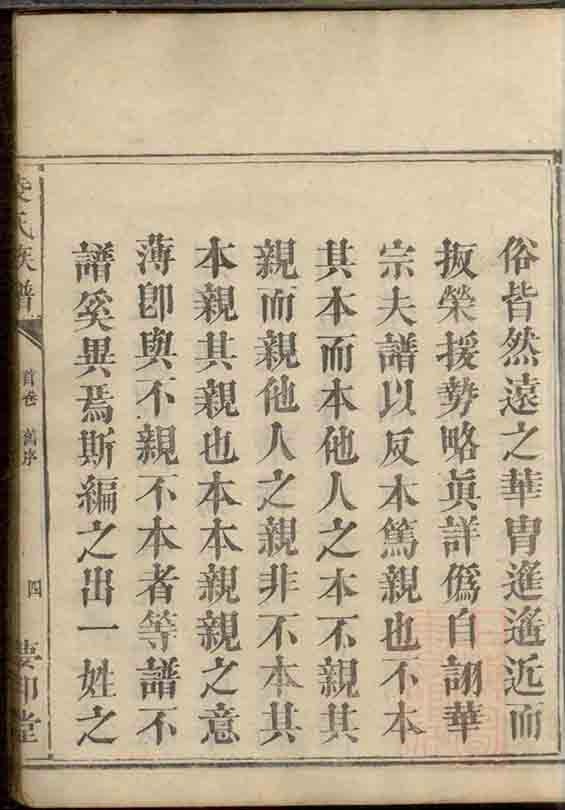 俗皆然遠之華胄遙遙近而
扳榮援勢略眞詳僞自詡華
宗夫譜以反本篤親也不本
其本而本他人之本不親其
親而親他人之親非不本其
本親其親也本本親親之意
薄卽與不親不本者等譜不
譜奚異焉斯編之出一姓之
氏族譜
首卷 舊序
四